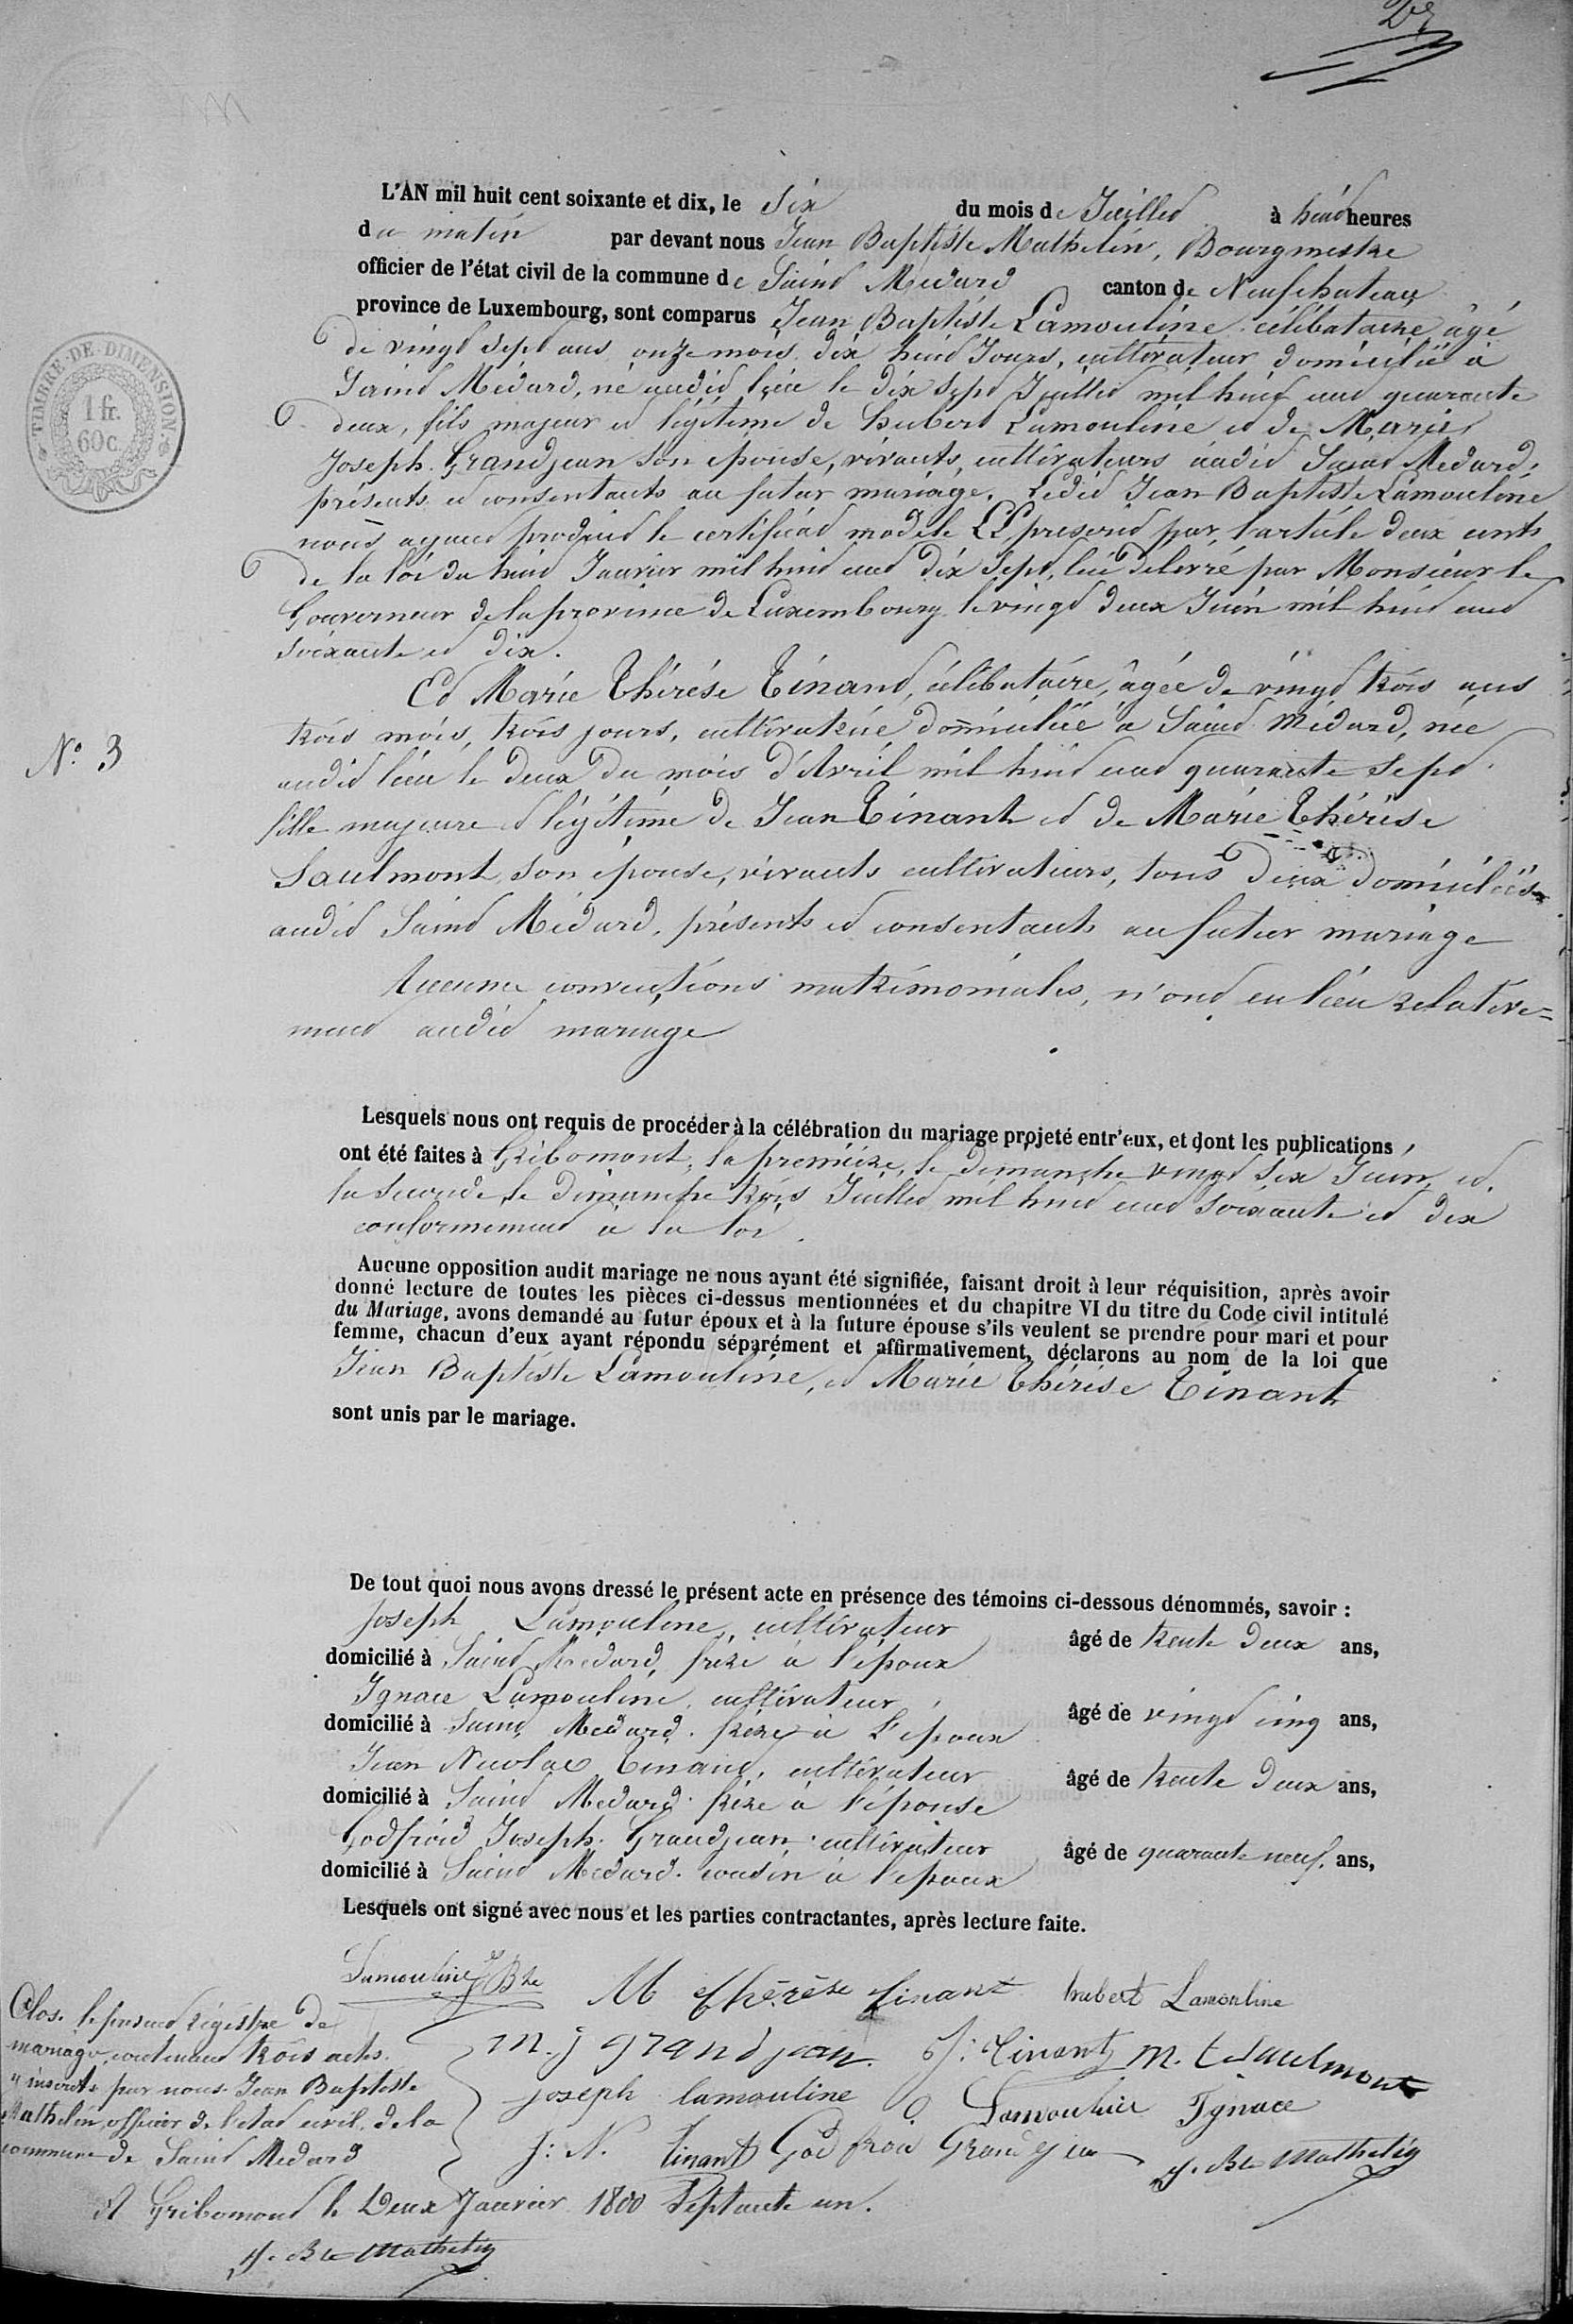 L'AN mil huit cent soixante et dix, le six du mois de Juillet à huit heures
du matin par devant nous Jean Baptiste Mathelin, Bourgmestre
officier de l'état civil de la commune de Saint Médard canton de Neufchateau
province de Luxembourg, sont comparus Jean Baptiste Lamouline célibataire âgé
de vingt sept ans onze mois dix huit Jours, cultivateur domicilié à
Saint Médard, né audit lieu le dix sept Juillet mil huit cent quarante
deux, fils majeur et légitime de hubert Lamouline et de Marie
Joseph Grandjean son épouse, vivants, cultivateurs audit Saint Médard,
présents et consentants au futur mariage. Ledit Jean Baptiste Lamouline
nous ayant produit le certificat modèle LL prescrit par l'article deux cents
de la loi du huit Janvier mil huit cent dix sept, lui délivré par Monsieur le
Gouverneur de la province de Luxembourg le vingt deux Juin mil huit cent
soixante et dix.
Et Marie Thérèse Tinant, célibataire, âgée de vingt trois ans
trois mois, trois jours, cultivatrice domiciliée à Saint Médard, née
audit lieu le deux du mois d'Avril mil huit cent quarante sept
fille majeure et légitime de Jean Tinant et de Marie Thérèse
Saulmont, son épouse, vivants cultivateurs, tous deux domiciliés
audit Saint Médard, présents et consentants au futur mariage
Aucune conventions matrimoniales, n'ont eu lieu relative=
ment audit mariage
N.° 3
TIMBRE DE DIMENSION
1 fr.
60 c.
Lesquels nous ont requis de procéder à la célébration du mariage projeté entr'eux, et dont les publications
ont été faites à Gribomont, la première, le dimanche vingt six Juin, et
la seconde le dimanche trois Juillet mil huit cent soixante et dix
conformement à la loi.
Aucune opposition audit mariage ne nous ayant été signifiée, faisant droit à leur réquisition, après avoir
donné lecture de toutes les pièces ci-dessus mentionnées et du chapitre VI du titre du Code civil intitulé
du Mariage, avons demandé au futur époux et à la future épouse s'ils veulent se prendre pour mari et pour
femme, chacun d'eux ayant répondu séparément et affirmativement, déclarons au nom de la loi que
Jean Baptiste Lamouline, et Marie Thérèse Tinant
sont unis par le mariage.
De tout quoi nous avons dressé le présent acte en présence des témoins ci-dessous dénommés, savoir :
Joseph Lamouline, cultivateur âgé de trente deux ans,
domicilié à Saint Médard, frère à l'époux
Ignace Lamouline, cultivateur âgé de vingt cinq ans,
domicilié à Saint Médard. frère à l'époux
Jean Nicolas Tinant, cultivateur âgé de trente deux ans,
domicilié à Saint Médard. frère à l'épouse
Godfroid Joseph Grandjean, cultivateur âgé de quarante neuf. ans,
domicilié à Saint Médard. cousin à l'époux
Lesquels ont signé avec nous et les parties contractantes, après lecture faite.
Lamouline J Bte M thérèse tinant hubert Lamouline
m. j grandjean J: Tinant m. t Saulmont
joseph lamouline Lamouline Ignace
J: N. tinant Godfroid Grandjean J. Bte Mathelin
Clos. le présent régistre de
mariage, contenant trois actes.
y inscrits par nous Jean Baptiste
Mathelin, officier de l'état civil de la
commune de Saint Médard
A Gribomont le Deux Janvier 1800 Septante un.
J. Bte Mathelin